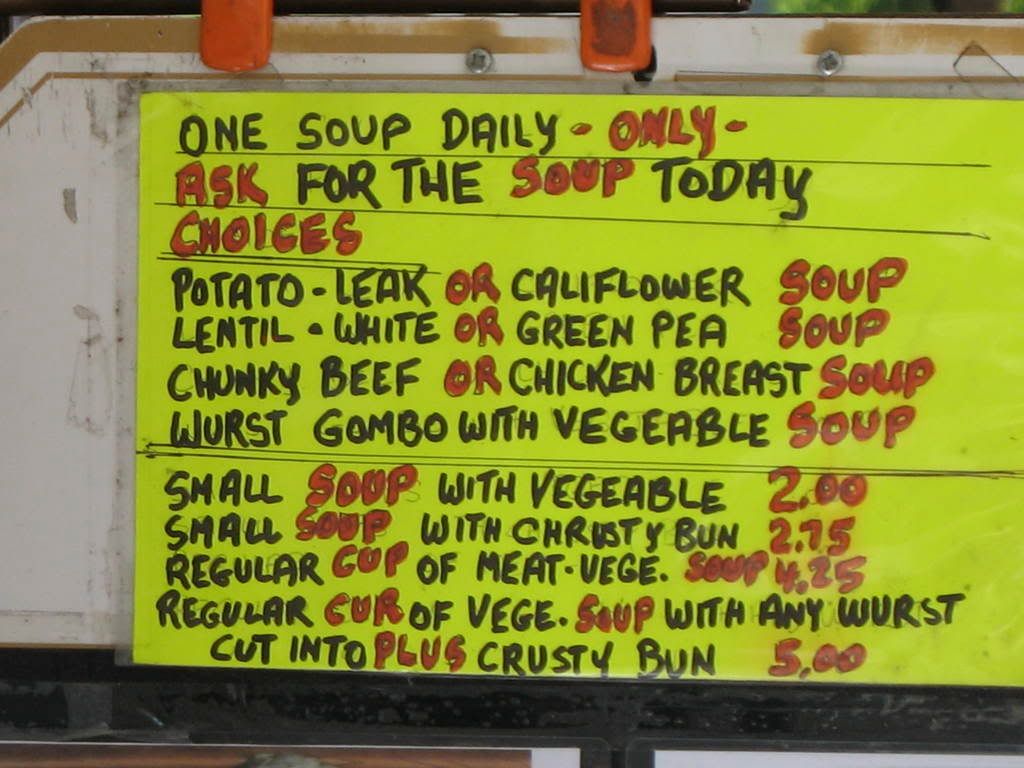 ONE SOUP DAILY - ONLY -
ASK FOR THE SOUP TODAY
CHOICES
POTATO - LEAK OR CALIFLOWER SOUP
LENTIL • WHITE OR GREEN PEA SOUP
CHUNKY BEEF OR CHICKEN BREAST SOUP
WURST GOMBO WITH VEGEABLE SOUP
SMALL SOUP WITH VEGEABLE 2.00
SMALL SOUP WITH CHRUSTY BUN 2.75
REGULAR CUP OF MEAT-VEGE. SOUP 4.25
REGULAR CUP OF VEGE. SOUP WITH ANY WURST
CUT INTO PLUS CRUSTY BUN 5.00